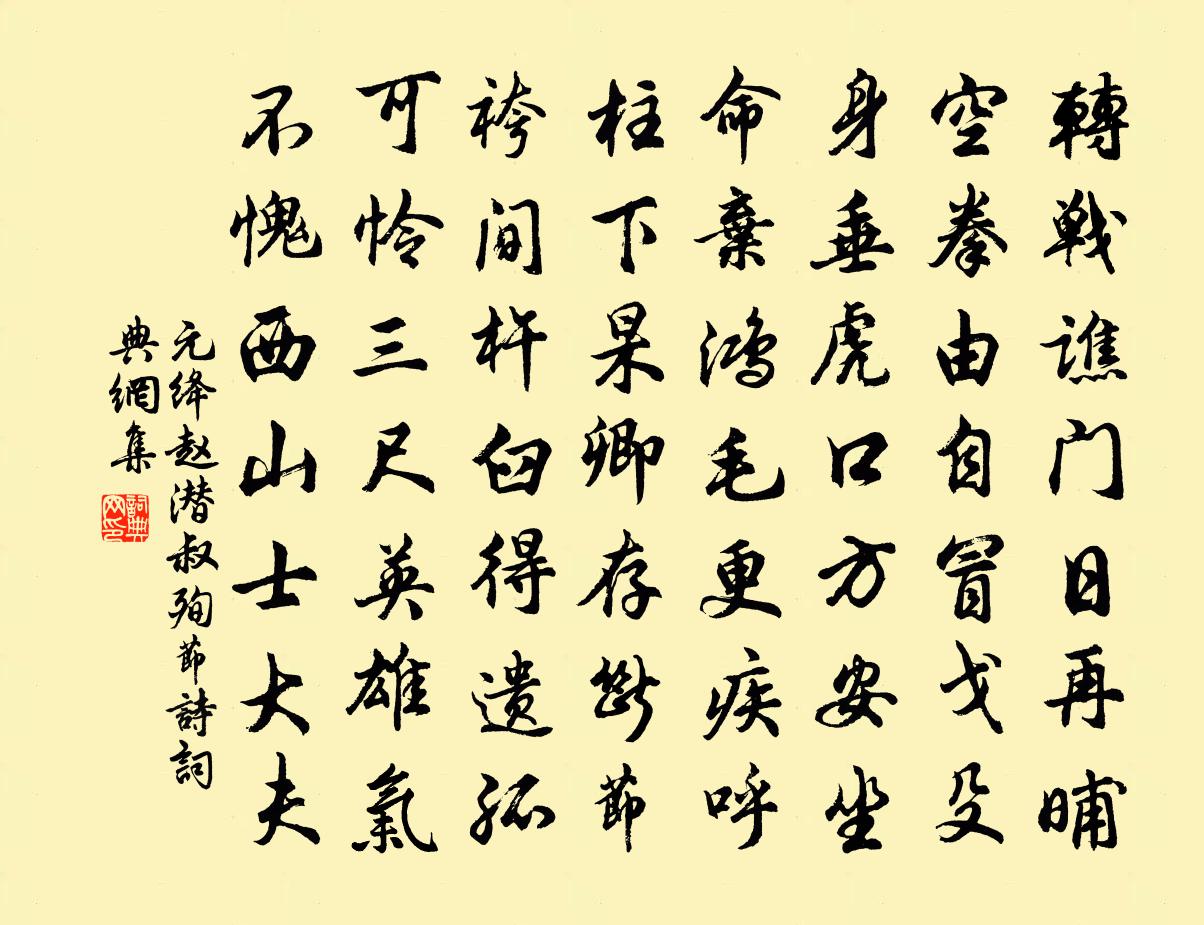 轉戦譙门日再晡
空拳由自冒戈殳
身垂虎口方安坐
命棄鸿毛更疾呼
柱下杲卿存斷節
袴间杵臼得遗孤
可怜三尺英雄氣
不愧西山士大夫
元绛赵潜叔殉節詩詞
典網集
詞典网印